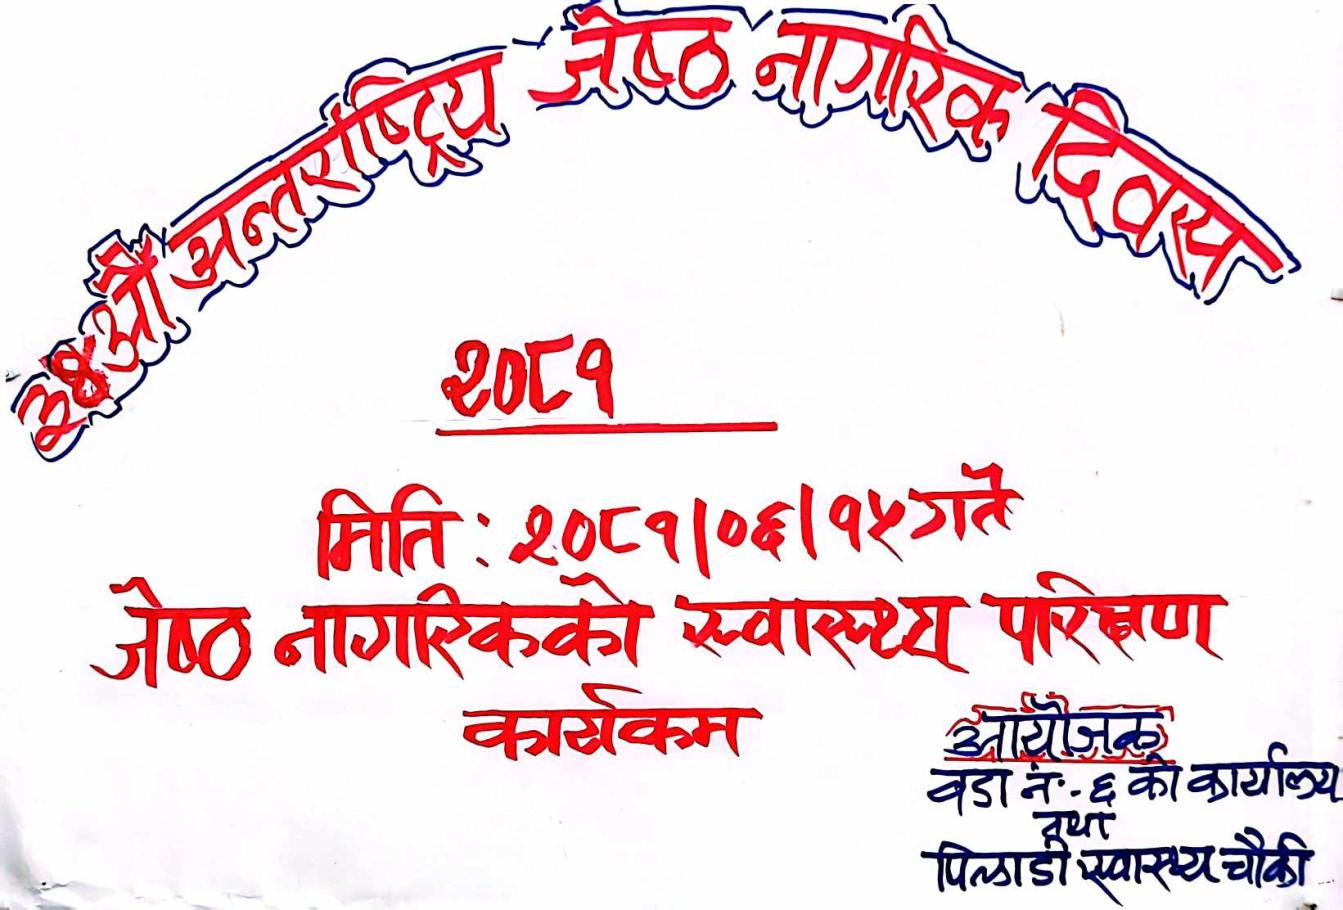 ३४औं अन्तराष्ट्रिय जेष्ठ नागरिक दिवस
२०८१
मिति : २०८१।०६।१५ गते
जेष्ठ नागरिकको स्वास्थ्य परिक्षण
कार्यक्रम
आयोजक
वडा नं.-६ को कार्यालय
तथा
पिलाडी स्वास्थ्य चौकी